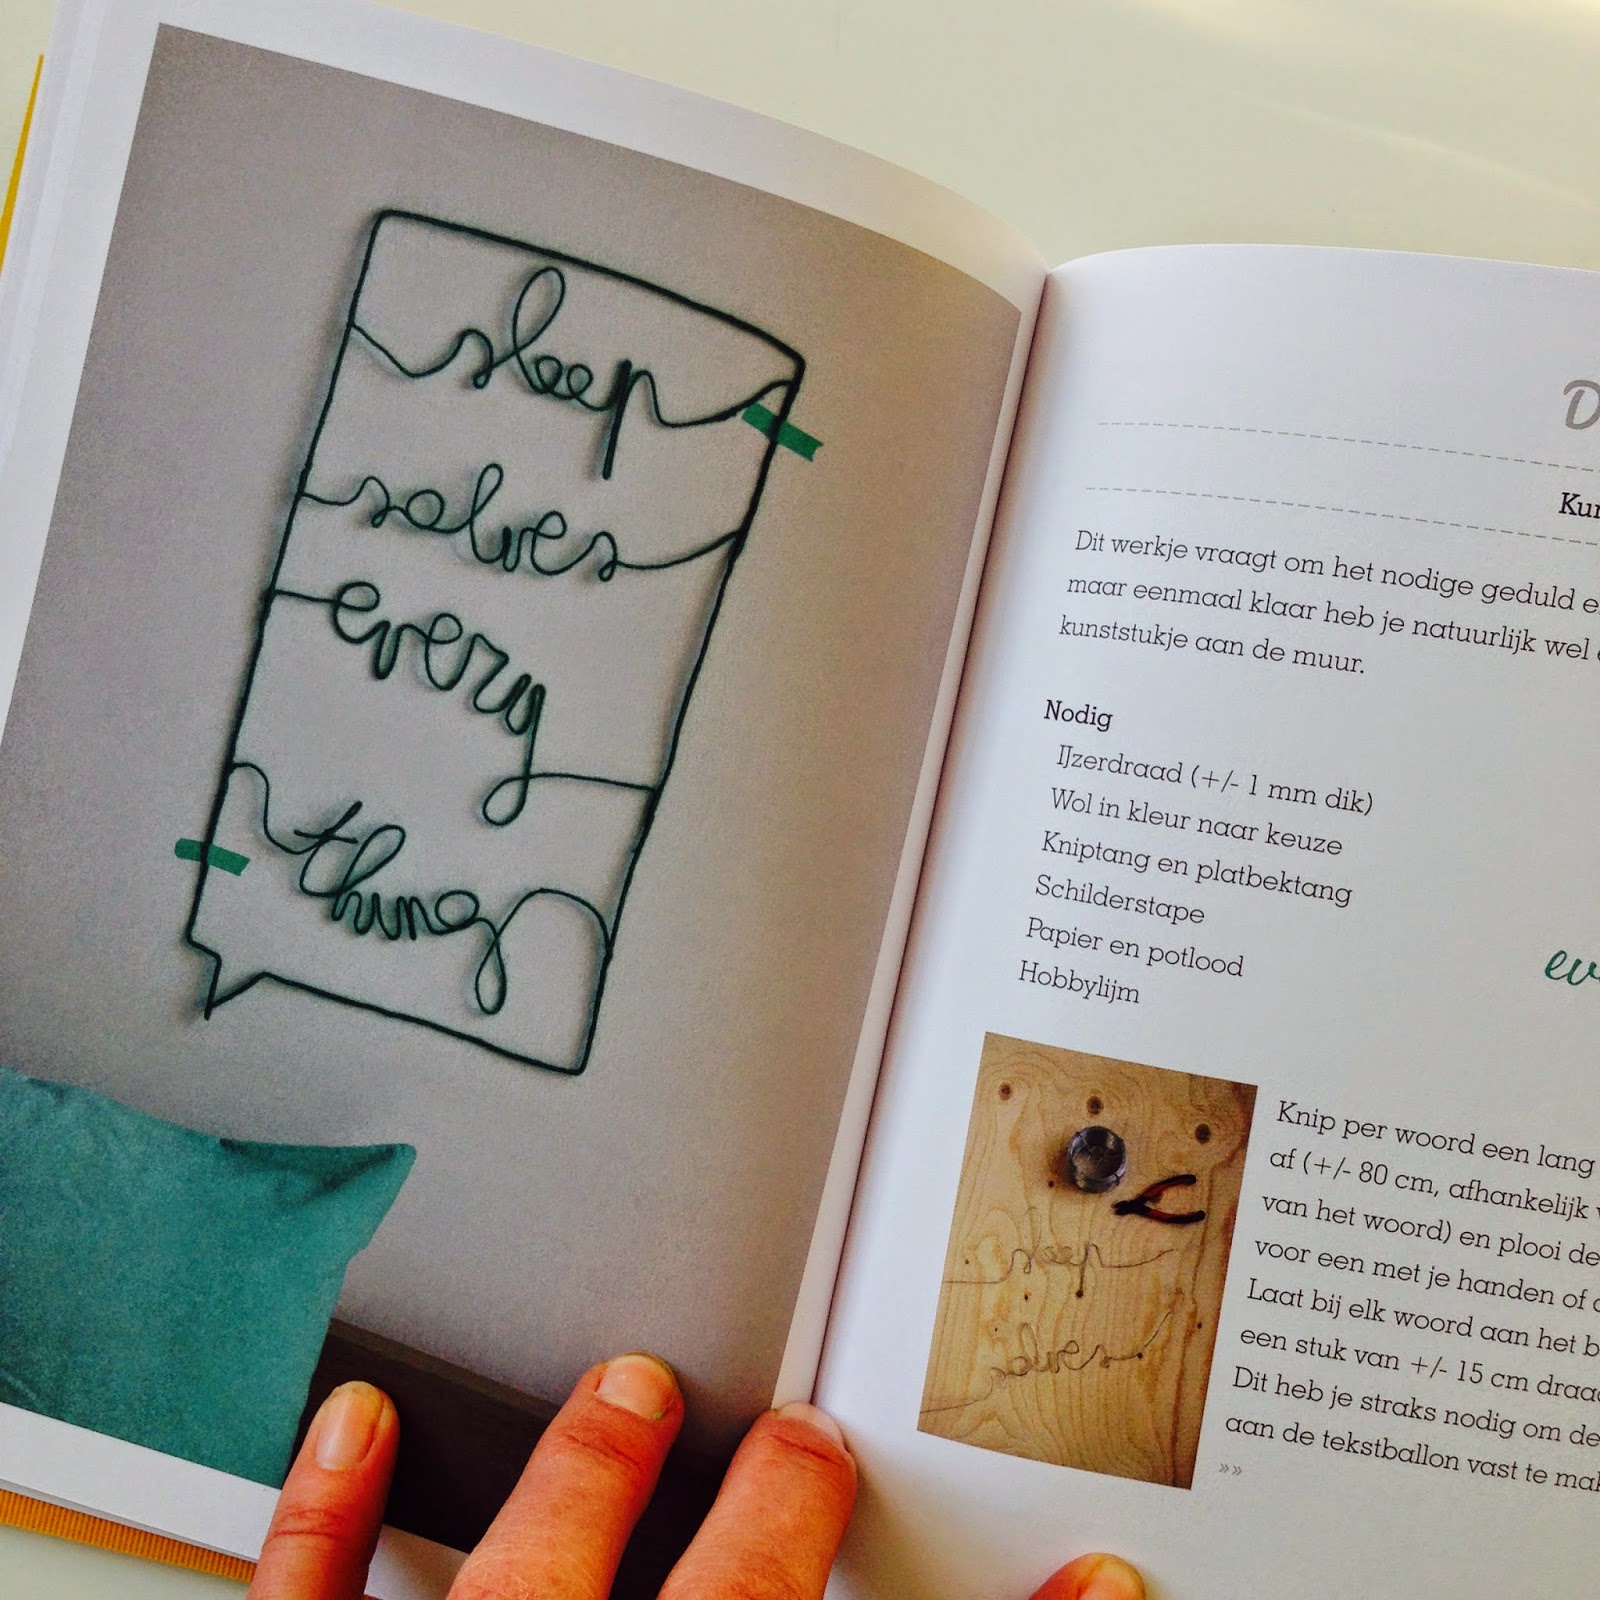 sleep
solves
every
thing
Dit werkje vraagt om het nodige geduld
maar eenmaal klaar heb je natuurlijk wel
kunststukje aan de muur.
Nodig
IJzerdraad (+/- 1 mm dik)
Wol in kleur naar keuze
Kniptang en platbektang
Schilderstape
Papier en potlood
Hobbylijm
sleep
solves
Knip per woord een lang
af (+/- 80 cm, afhankelijk
van het woord) en plooi de
voor een met je handen of
Laat bij elk woord aan het
een stuk van +/- 15 cm
Dit heb je straks nodig om de
aan de tekstballon vast te
»»